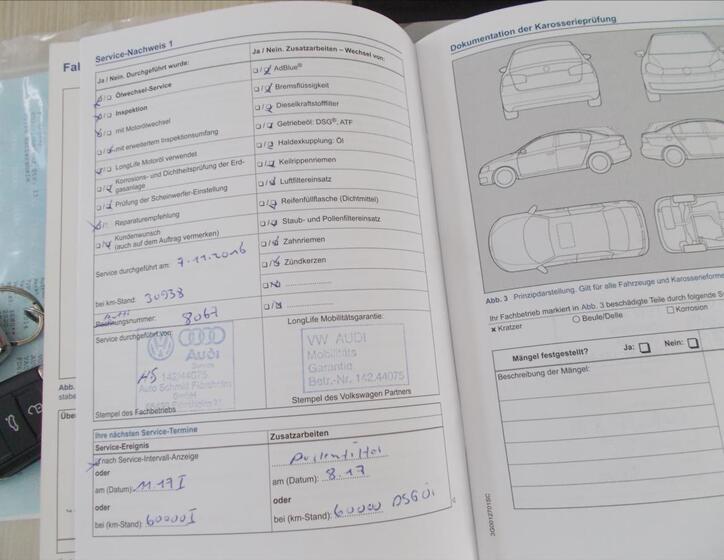 Service-Nachweis 1
Ja / Nein. Durchgeführt wurde:
☒/☐ Ölwechsel-Service
☒/☐ Inspektion
☒/☐ mit Motorölwechsel
☐/☒ mit erweitertem Inspektionsumfang
☒/☐ LongLife Motoröl verwendet
☐/☒ Korrosions- und Dichtheitsprüfung der Erd-
gasanlage
☐/☒ Prüfung der Scheinwerfer-Einstellung
☒/☐ Reparaturempfehlung
☐/☒ Kundenwunsch
(auch auf dem Auftrag vermerken)
Service durchgeführt am: 7.11.2016
bei km-Stand: 30938
nummer: 8067
Service durchgeführt von:
Audi
Service
HS 142/44075
Auto Schmid Flörsheim
GmbH
Stempel des Fachbetriebs
Ja / Nein. Zusatzarbeiten – Wechsel von:
☐/☒ AdBlue®
☐/☒ Bremsflüssigkeit
☐/☒ Dieselkraftstofffilter
☐/☒ Getriebeöl: DSG®, ATF
☐/☒ Haldexkupplung: Öl
☐/☒ Keilrippenriemen
☐/☒ Luftfiltereinsatz
☐/☒ Reifenfüllflasche (Dichtmittel)
☐/☒ Staub- und Pollenfiltereinsatz
☐/☒ Zahnriemen
☐/☒ Zündkerzen
LongLife Mobilitätsgarantie:
VW AUDI
Mobilitäts
Garantie
Betr.-Nr. 142.44075
Stempel des Volkswagen Partners
Ihre nächsten Service-Termine
Service-Ereignis
nach Service-Intervall-Anzeige
oder
am (Datum): 11 17 I
oder
bei (km-Stand): 60000 I
Zusatzarbeiten
Pollenfilter
am (Datum): 8.17
oder
bei (km-Stand): 60000 DSG Öl
Dokumentation der Karosserieprüfung
Abb. 3 Prinzipdarstellung. Gilt für alle Fahrzeuge und Karosserieforme
Ihr Fachbetrieb markiert in Abb. 3 beschädigte Teile durch folgende
× Kratzer ○ Beule/Delle □ Korrosion
Mängel festgestellt? Ja: ☐ Nein: ☐
Beschreibung der Mängel:
3G0012701SC
Fa
Abb.
stabe
Über